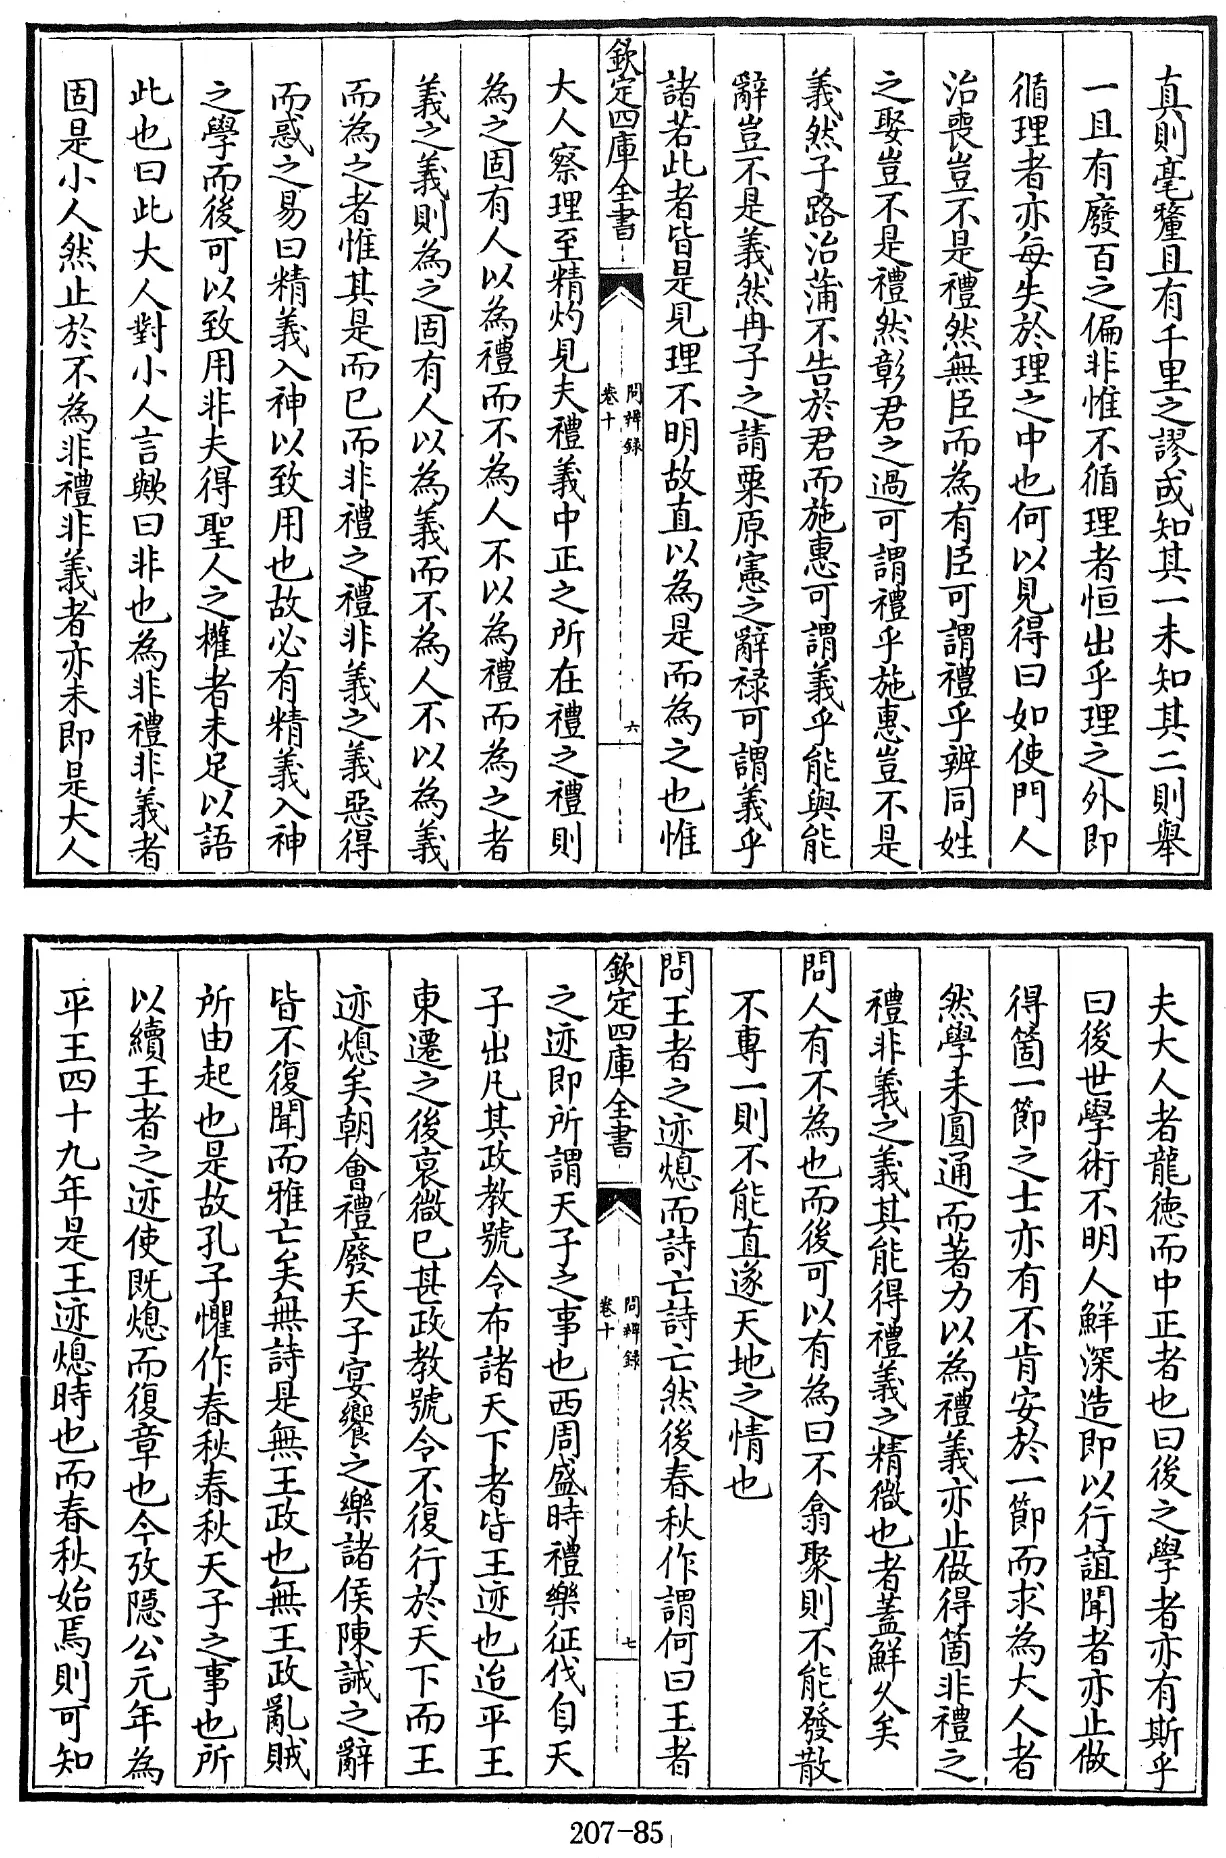 真則毫釐且有千里之謬或知其一未知其二則舉
一且有廢百之偏非惟不循理者恒出乎理之外即
循理者亦每失於理之中也何以見得曰如使門人
治喪豈不是禮然無臣而為有臣可謂禮乎辨同姓
之娶豈不是禮然彰君之過可謂禮乎施惠豈不是
義然子路治蒲不告於君而施惠可謂義乎能與能
辭豈不是義然冉子之請粟原憲之辭禄可謂義乎
諸若此者皆是見理不明故直以為是而為之也惟
欽定四庫全書
問辨録
卷十
六
大人察理至精灼見夫禮義中正之所在禮之禮則
為之固有人以為禮而不為人不以為禮而為之者
義之義則為之固有人以為義而不為人不以為義
而為之者惟其是而已而非禮之禮非義之義惡得
而惑之易曰精義入神以致用也故必有精義入神
之學而後可以致用非夫得聖人之權者未足以語
此也曰此大人對小人言歟曰非也為非禮非義者
固是小人然止於不為非禮非義者亦未即是大人
夫大人者龍徳而中正者也曰後之學者亦有斯乎
曰後世學術不明人鮮深造即以行誼聞者亦止做
得箇一節之士亦有不肯安於一節而求為大人者
然學未圓通而著力以為禮義亦止做得箇非禮之
禮非義之義其能得禮義之精微也者蓋鮮久矣
問人有不為也而後可以有為曰不翕聚則不能發散
不專一則不能直遂天地之情也
問王者之迹熄而詩亡詩亡然後春秋作謂何曰王者
欽定四庫全書
問辨録
卷十
七
之迹即所謂天子之事也西周盛時禮樂征伐自天
子出凡其政教號令布諸天下者皆王迹也迨平王
東遷之後衰微已甚政教號令不復行於天下而王
迹熄矣朝會禮廢天子宴饗之樂諸侯陳誡之辭
皆不復聞而雅亡矣無詩是無王政也無王政亂賊
所由起也是故孔子懼作春秋春秋天子之事也所
以續王者之迹使既熄而復章也今攷隱公元年為
平王四十九年是王迹熄時也而春秋始焉則可知
207-85